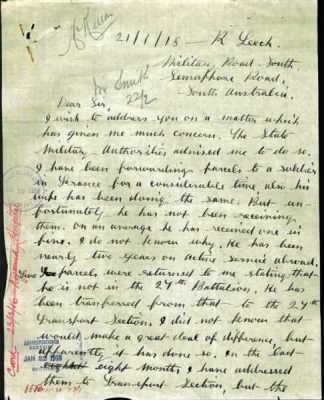 21/1/18 – R Leech.
Military Road South
Semaphore Road,
South Australia.
Mr Smith
22/2
Dear Sir,
I wish to address you on a matter which
has given me much concern. The State
Military Authorities advised me to do so.
I have been forwarding parcels to a soldier
in France for a considerable time, also his
wife has been doing the same. But un-
fortunately he has not been receiving
them. On an average he has received one in
five. I do not know why. He has been
nearly two years on active service abroad.
Two parcels were returned to me stating that
he is not in the 27th Battalion. He has
been transferred from that to the 27th
Transport Section, I did not know that
would make a great deal of difference, but
apparently it has done so. In the last
eight months I have addressed
them to Transport Section, but the
JAN 1918